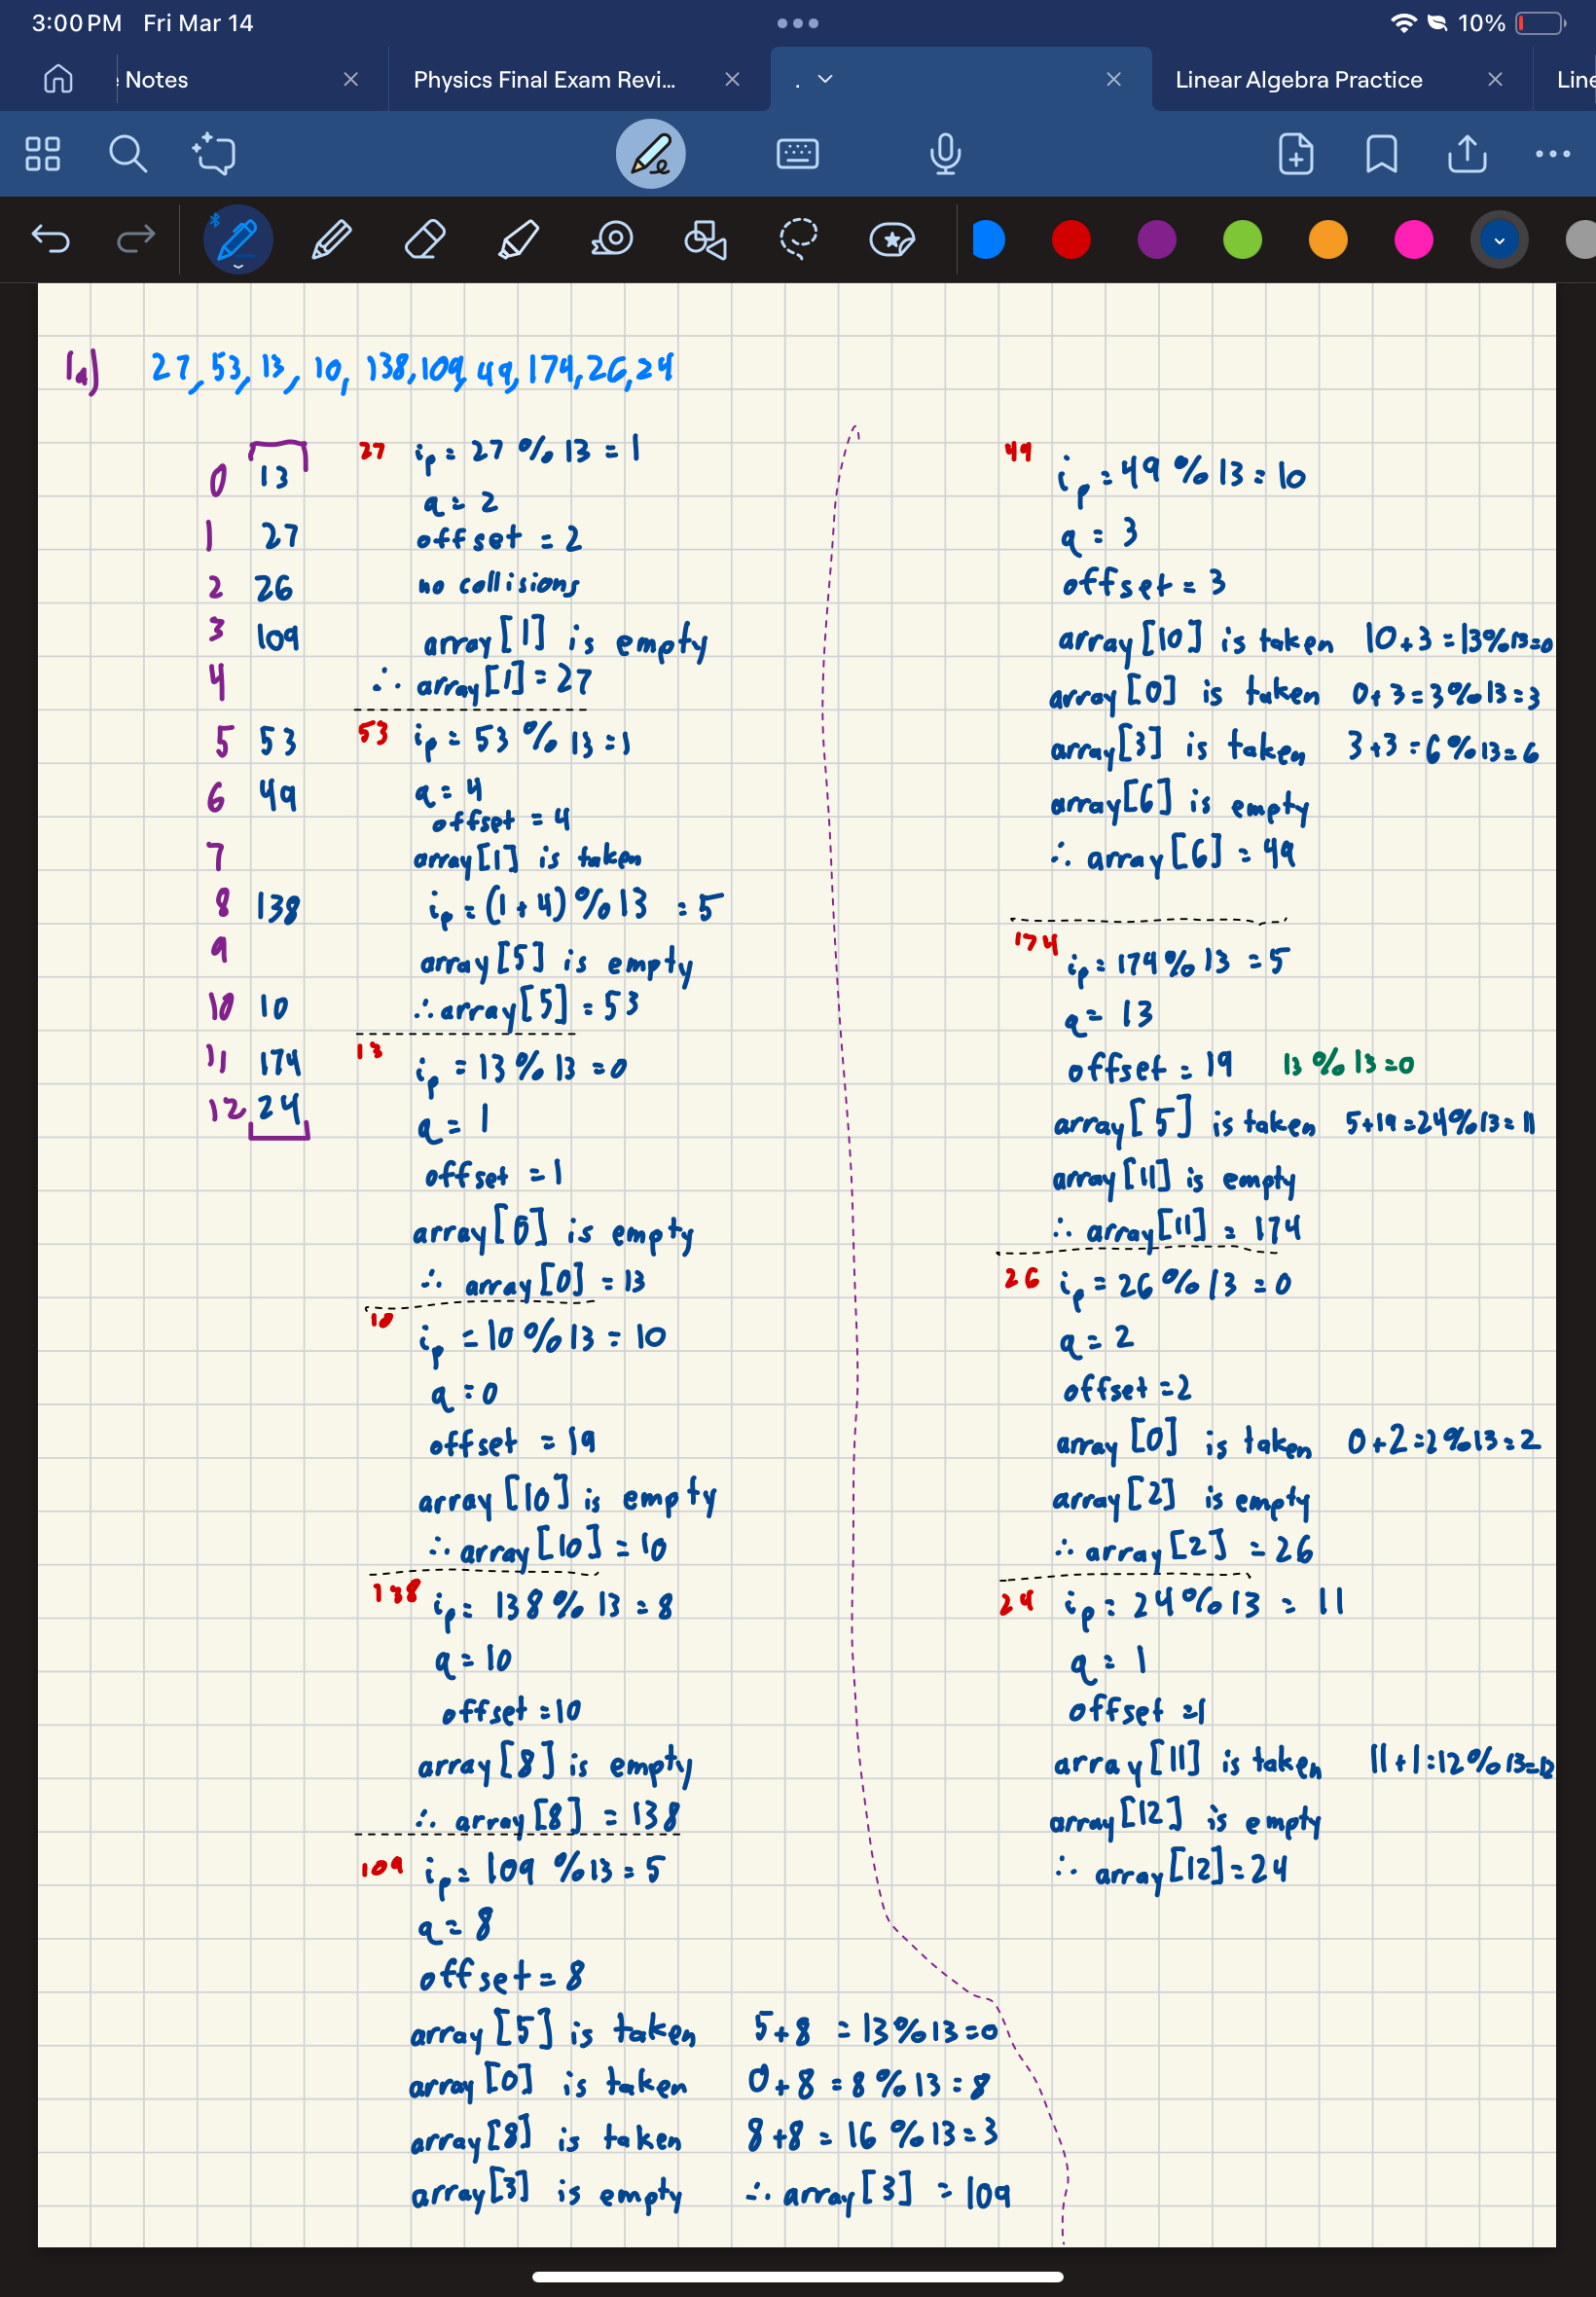 3:00 PM Fri Mar 14
10%
Notes
Physics Final Exam Revi...
.
Linear Algebra Practice
Line
1a) 27, 53, 13, 10, 138, 109, 49, 174, 26, 24
0 13
1 27
2 26
3 109
4
5 53
6 49
7
8 138
9
10 10
11 174
12 24
27 ip = 27 % 13 = 1
q = 2
offset = 2
no collisions
array[1] is empty
∴ array[1] = 27
53 ip = 53 % 13 = 1
q = 4
offset = 4
array[1] is taken
ip = (1 + 4) % 13 = 5
array[5] is empty
∴ array[5] = 53
13 ip = 13 % 13 = 0
q = 1
offset = 1
array[0] is empty
∴ array[0] = 13
10 ip = 10 % 13 = 10
q = 0
offset = 19
array[10] is empty
∴ array[10] = 10
138 ip = 138 % 13 = 8
q = 10
offset = 10
array[8] is empty
∴ array[8] = 138
109 ip = 109 % 13 = 5
q = 8
offset = 8
array[5] is taken 5+8 = 13%13=0
array[0] is taken 0+8 = 8%13=8
array[8] is taken 8+8 = 16%13=3
array[3] is empty ∴ array[3] = 109
49 ip = 49 % 13 = 10
q = 3
offset = 3
array[10] is taken 10+3 = 13%13=0
array[0] is taken 0+3 = 3%13=3
array[3] is taken 3+3 = 6%13=6
array[6] is empty
∴ array[6] = 49
174 ip = 174 % 13 = 5
q = 13
offset = 19 13 % 13 = 0
array[5] is taken 5+19 = 24%13 = 11
array[11] is empty
∴ array[11] = 174
26 ip = 26 % 13 = 0
q = 2
offset = 2
array[0] is taken 0+2 = 2%13 = 2
array[2] is empty
∴ array[2] = 26
24 ip = 24 % 13 = 11
q = 1
offset = 1
array[11] is taken 11+1 = 12%13=12
array[12] is empty
∴ array[12] = 24